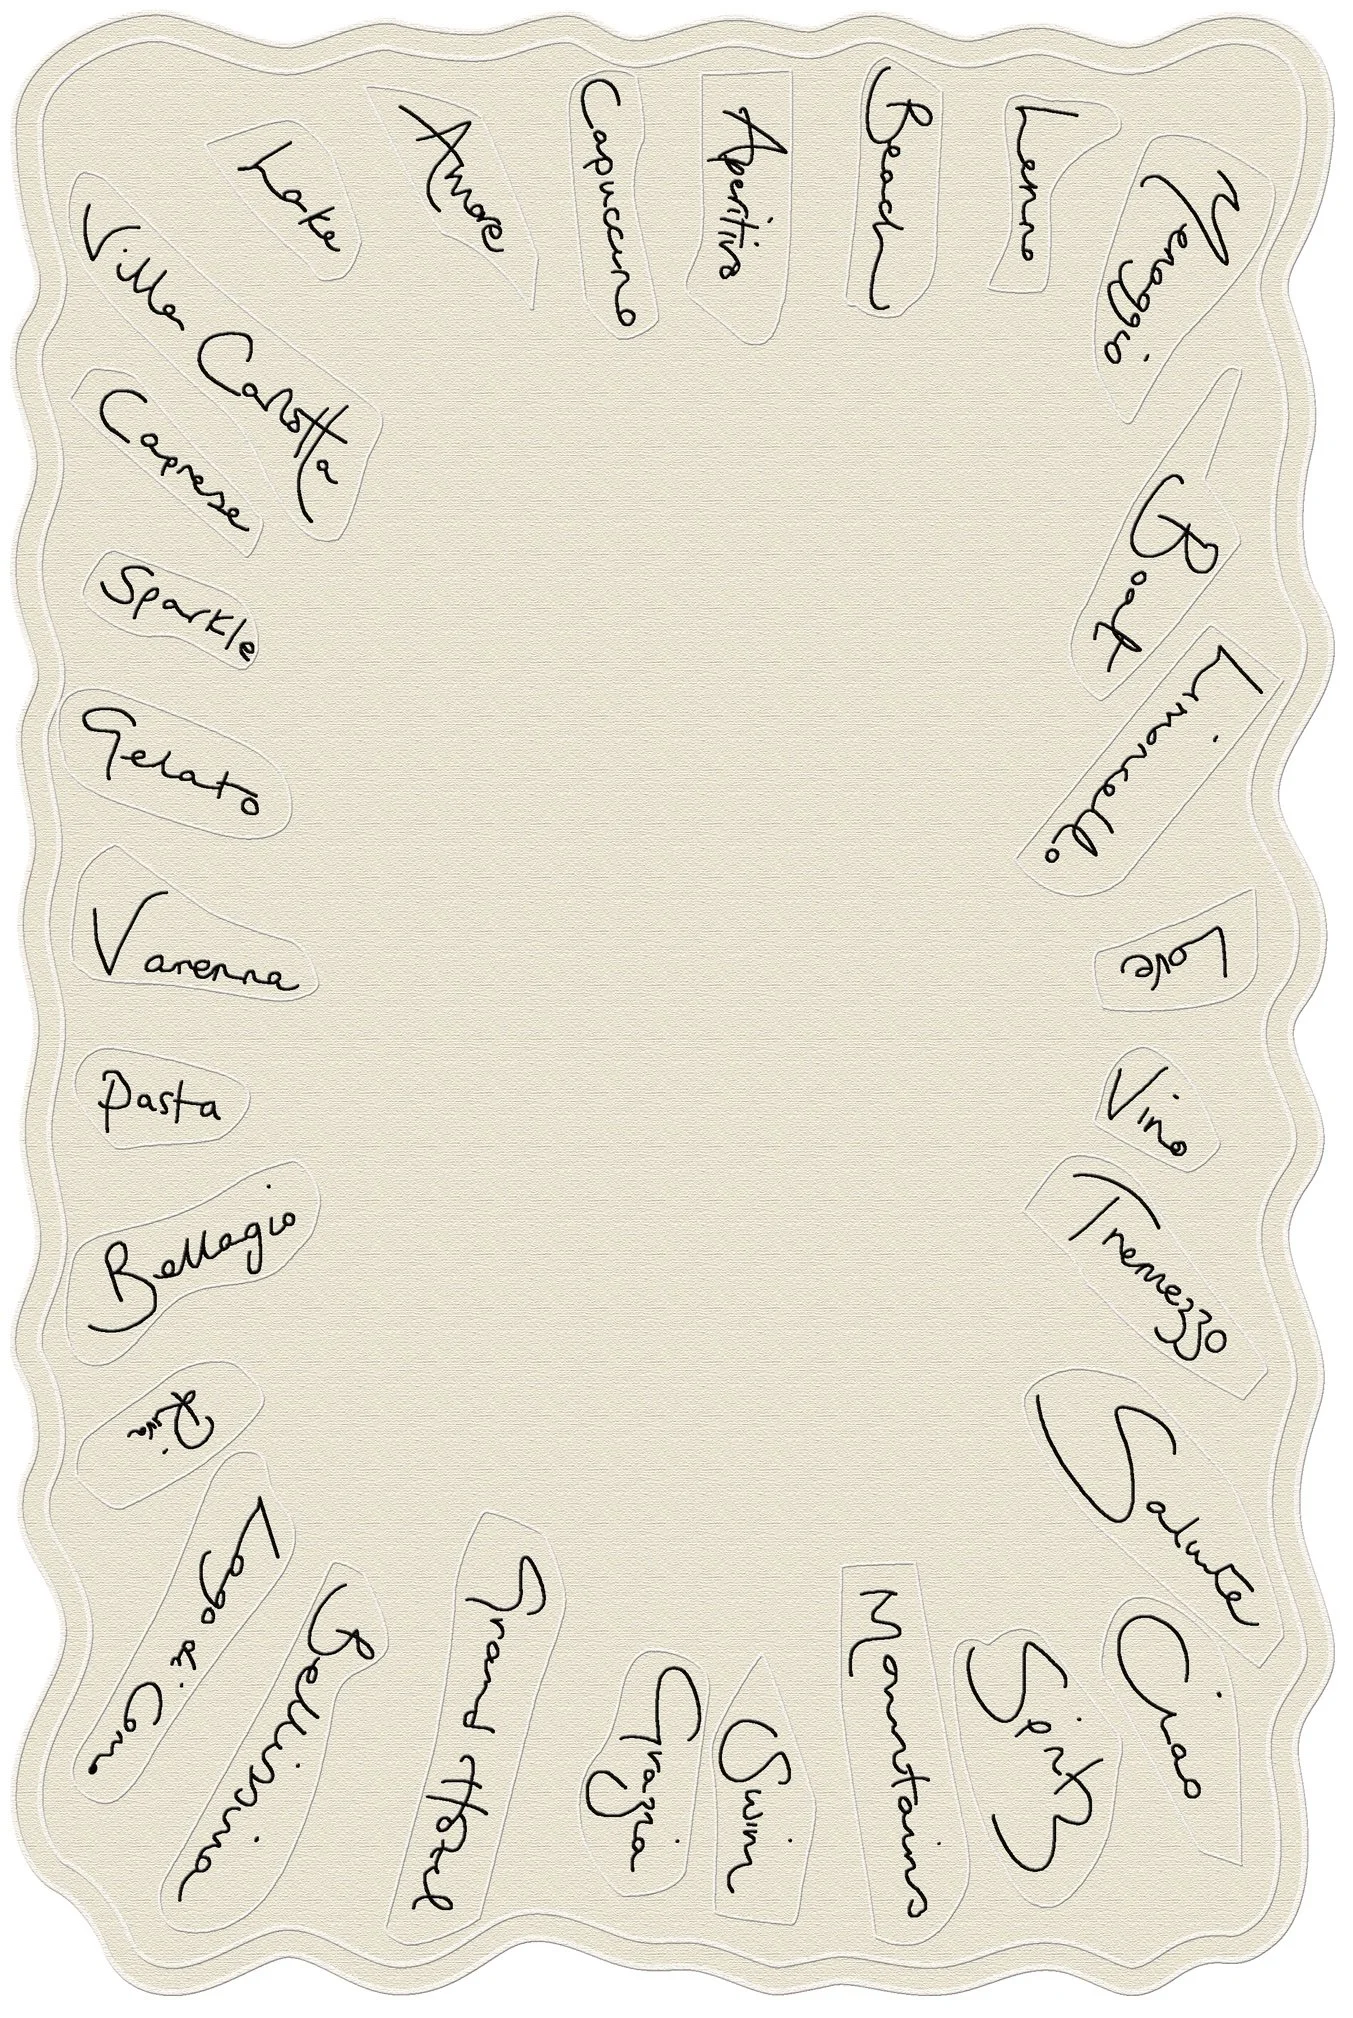 Lake
Amore
Capuccino
Aperitivo
Beach
Lenno
Menaggio
Boat
Limoncello
Love
Vino
Tremezzo
Salute
Ciao
Spritz
Mountains
Swim
Grazia
Grand Hotel
Bellissima
Lago di Como
Riva
Bellagio
Pasta
Varenna
Gelato
Sparkle
Caprese
Villa Carlotta